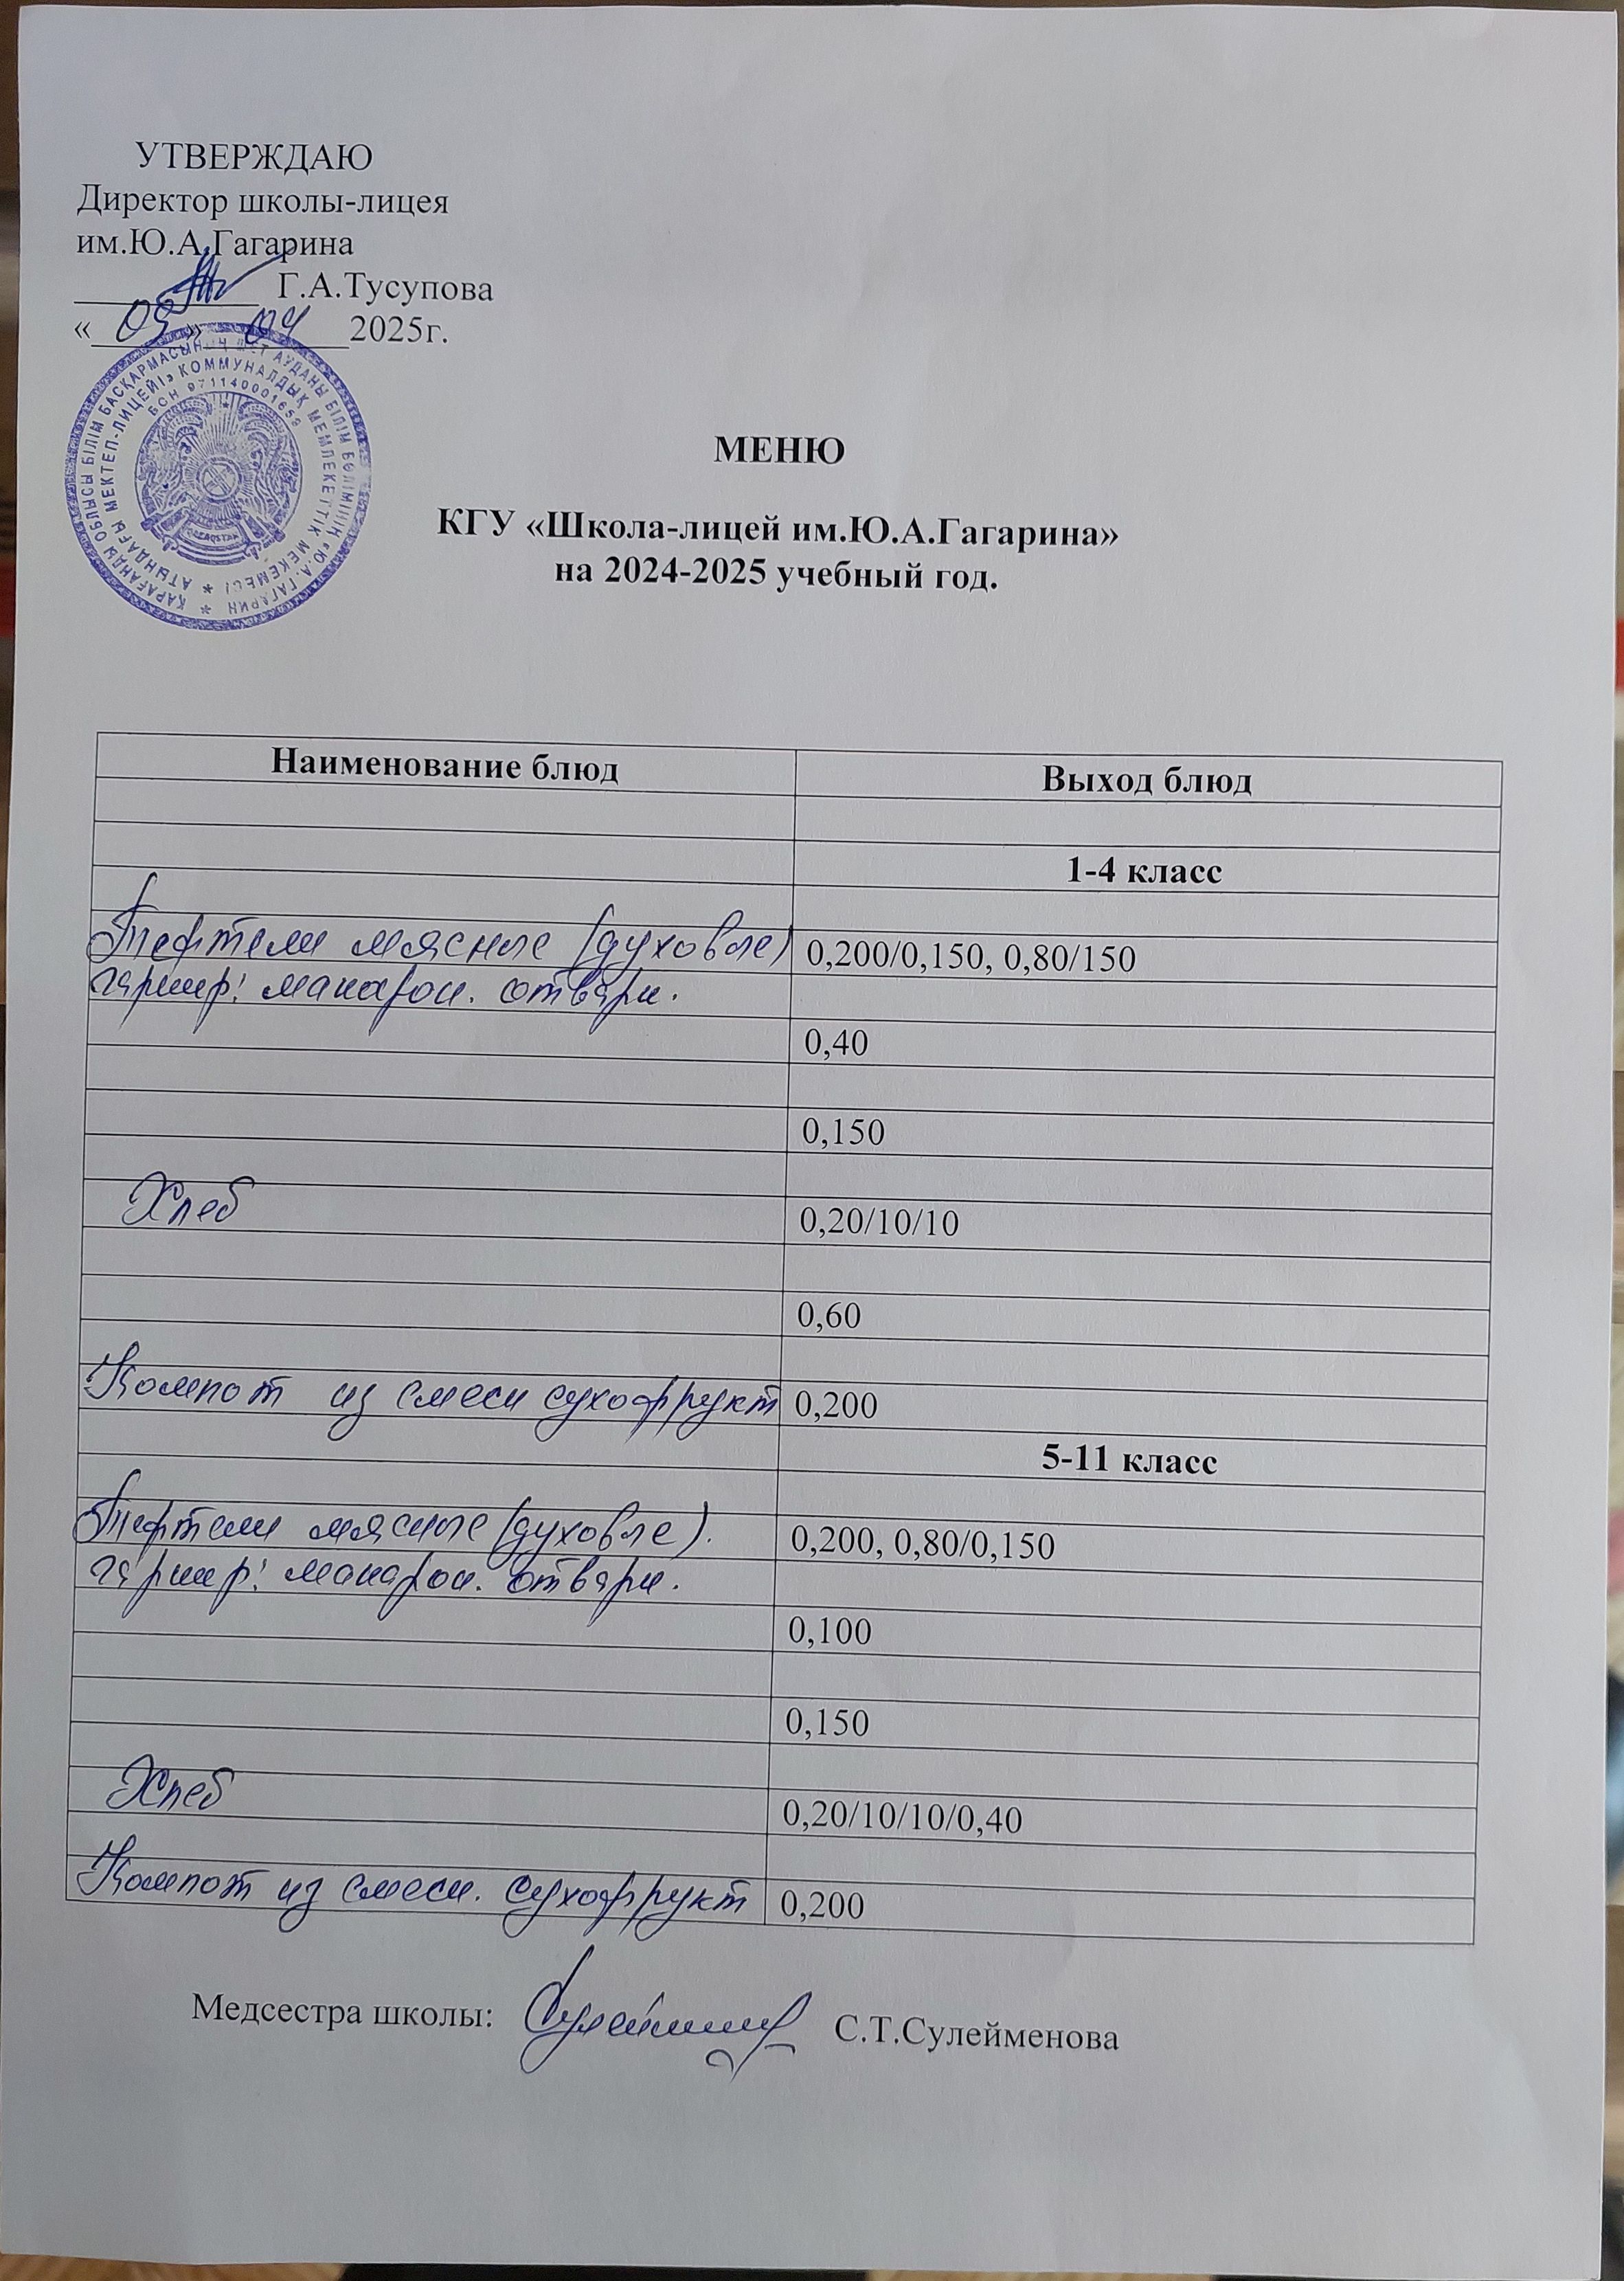 УТВЕРЖДАЮ
Директор школы-лицея
им.Ю.А.Гагарина
Г.А.Тусупова
« 09 » 04 2025г.
ҚАРАҒАНДЫ ОБЛЫСЫ БІЛІМ БАСҚАРМАСЫНЫҢ ШЕТ АУДАНЫ БІЛІМ БӨЛІМІНІҢ «Ю.А. ГАГАРИН
АТЫНДАҒЫ МЕКТЕП-ЛИЦЕЙІ» КОММУНАЛДЫҚ МЕМЛЕКЕТТІК МЕКЕМЕСІ
БСН 971140001659
QAZAQSTAN
МЕНЮ
КГУ «Школа-лицей им.Ю.А.Гагарина»
на 2024-2025 учебный год.
Наименование блюд Выход блюд
1-4 класс
Тефтели мясные (духовые) 0,200/0,150, 0,80/150
гарнир: макарон. отварн.
0,40
0,150
Хлеб 0,20/10/10
0,60
Компот из смеси сухофрукт 0,200
5-11 класс
Тефтели мясные (духовые). 0,200, 0,80/0,150
гарнир: макарон. отварн.
0,100
0,150
Хлеб 0,20/10/10/0,40
Компот из смеси. сухофрукт 0,200
Медсестра школы: С.Т.Сулейменова